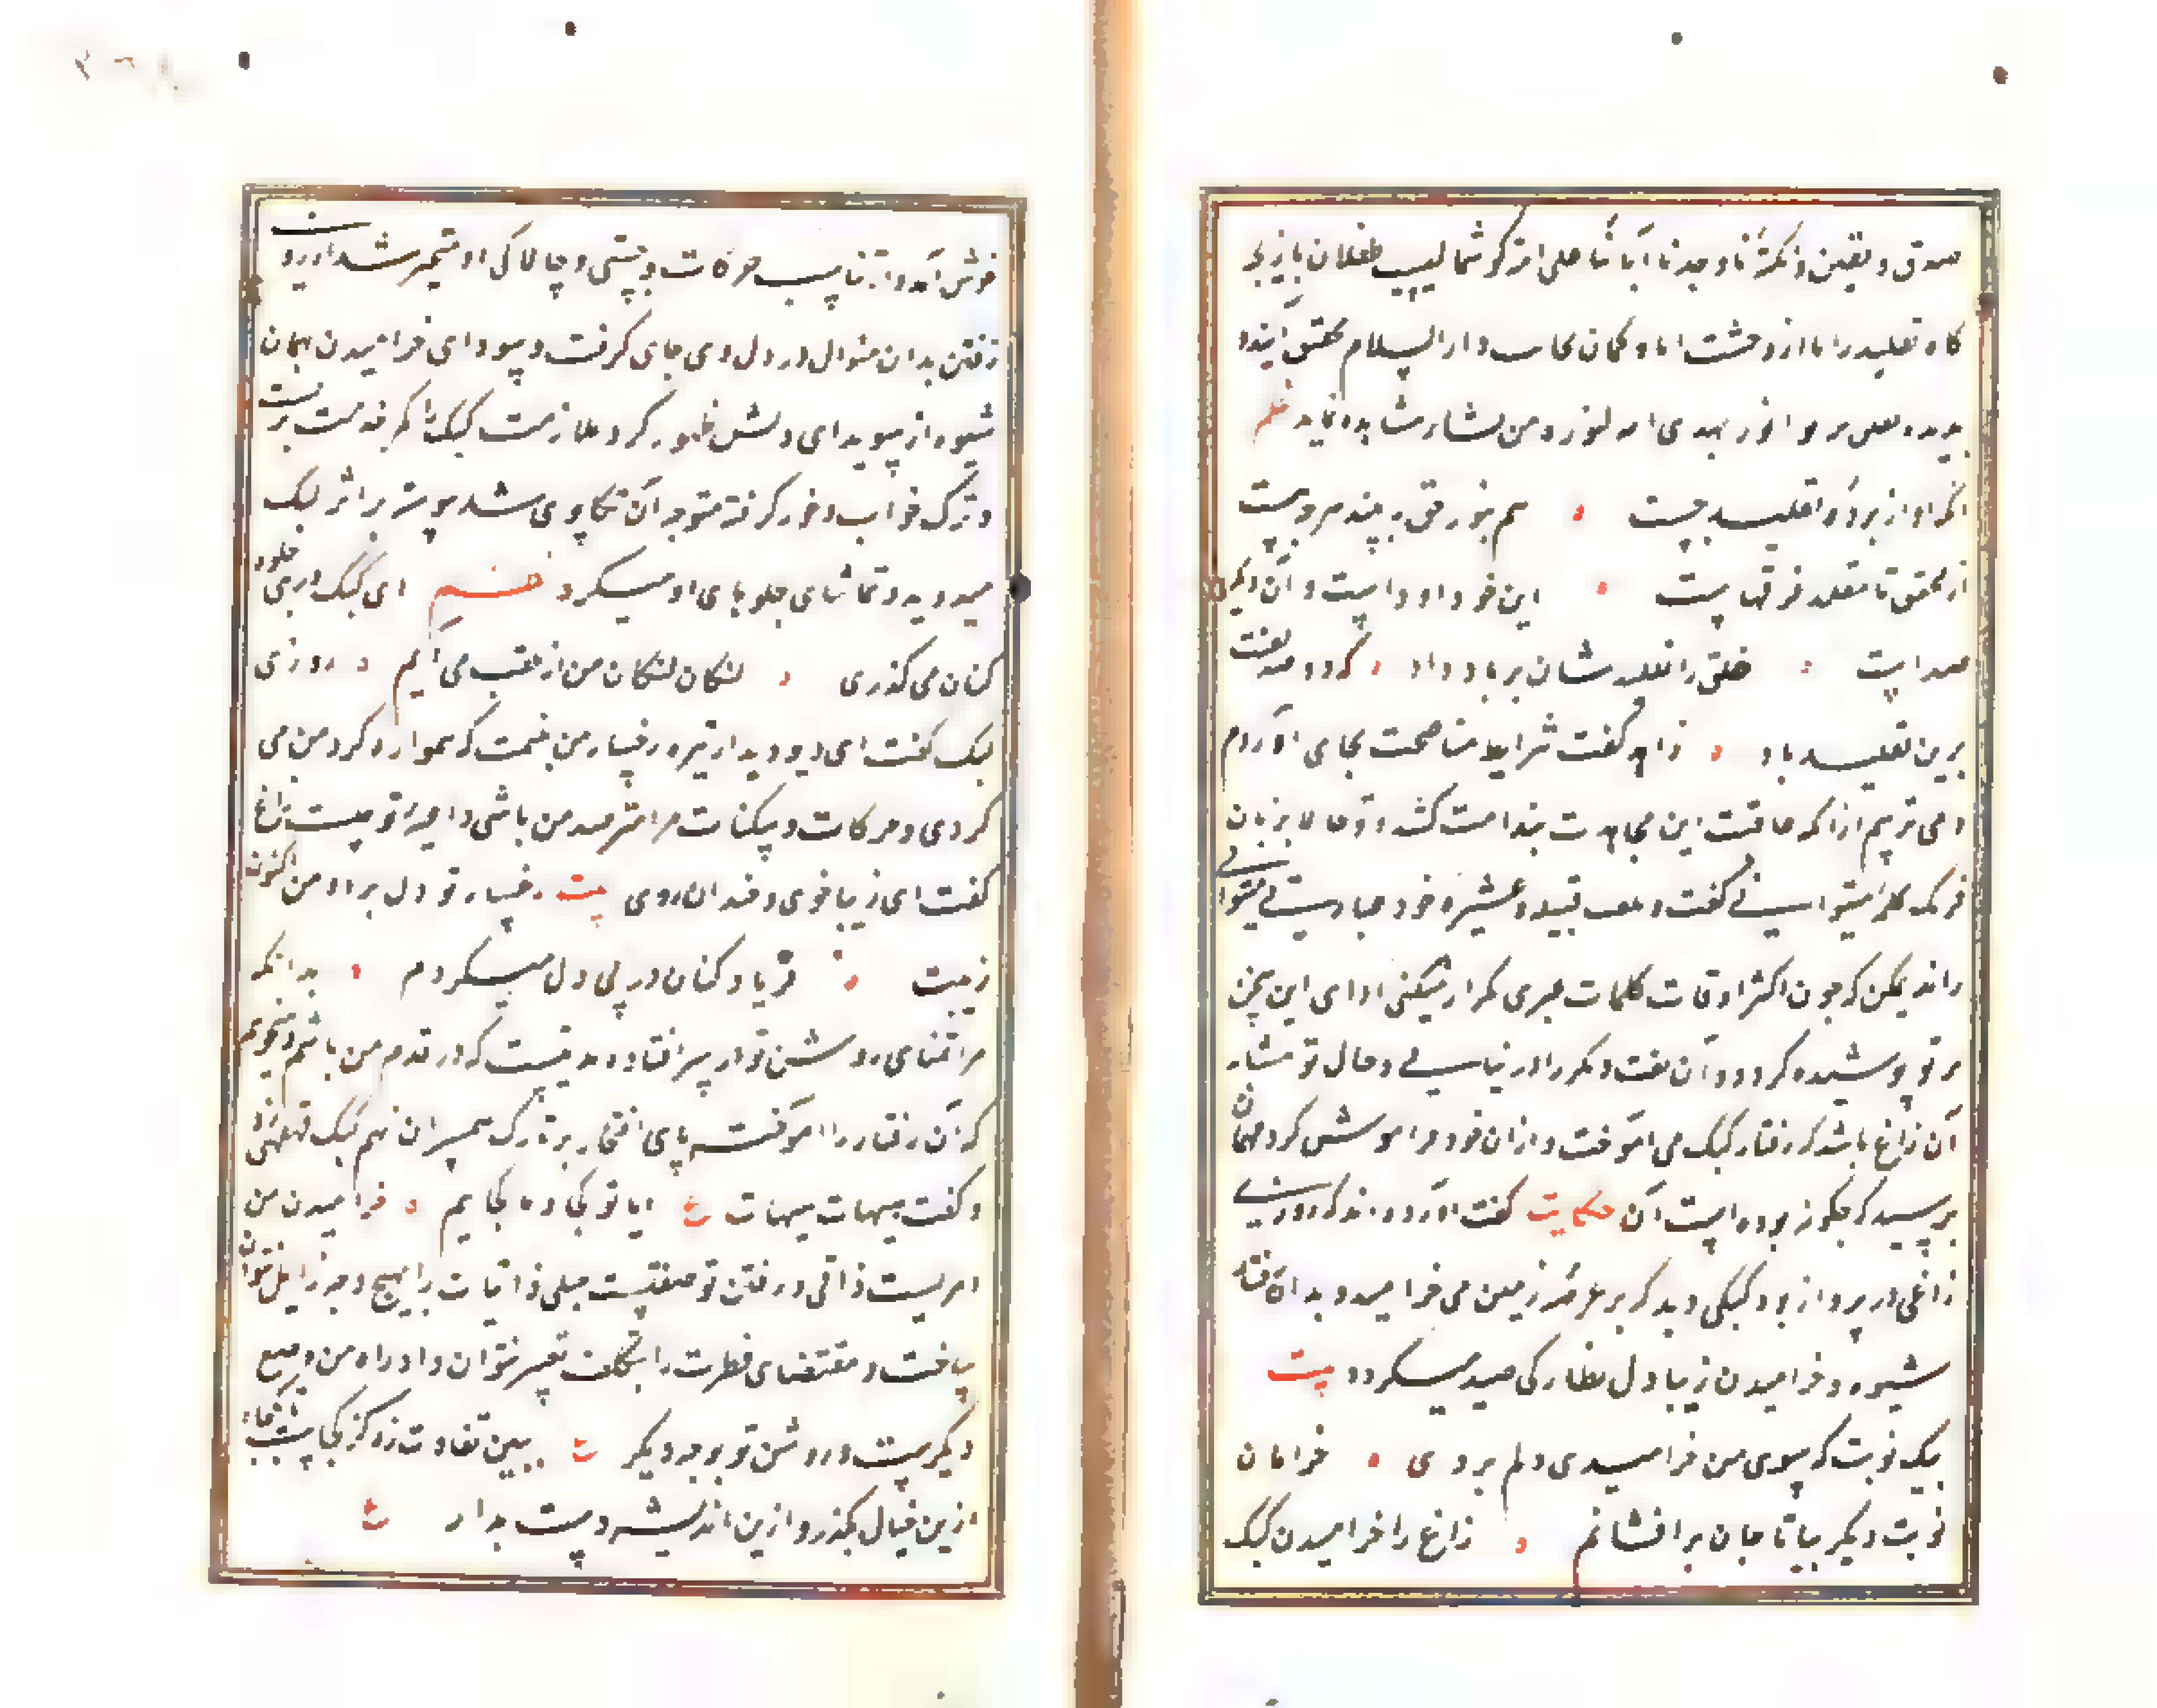 صدق و یقین و نکته انا وجدنا آباءنا علی امة گوشمالیست طفلان بازیچه
کاه تقلید را تا از وحشت اباد کمان بجانب دار السلام تحقیق آیند و
بدیده یهدی الله لنوره من یشاء مشاهده نماید نظم
اگر او از پرده تقلید جست هم بنور حق به بیند هرچه هست
از محقق تا مقلد فرقهاست این خود داوداست و آن دیگر
صداست خلق را تقلیدشان بر باد داد که دو صد لعنت
برین تقلید باد زاهد گفت شرایط مناصحت بجای آوردم
و می ترسم ازانکه عاقبت این مجاهدت بندامت کشد و تو حالا بزبان
فرنک کلمه میتوانی گفت و بلغت قبیله و عشیره خود عبارتی میتوانی
راند لیکن که چون اکثر اوقات کلمات عبری تکرار میکنی ادای این سخن
بر تو پوشیده گردد و آن لغت دیکر را در نیابی و حال تو مشابه
آن زاغ باشد که رفتار کبک می آموخت و از ان خود فراموش کرد مهمان
پرسید که چگونه بوده است آن حکایت گفت آورده اند که روزی
زاغی در پرواز بود کبکی دید که بر عرصه زمین می خرامید و بدان رفتار
شیوه و خرامیدن زیبا دل نظارگی صید میکرد بیت
بیک نوبت که سوی من خرامیدی دلم بردی خرامان
نوبت دیکر بیا تا جان برافشانم زاغ را خرامیدن کبک
خوش آمد و از تناسب حرکات و چستی و چالاکی او متحیر شد ارزوی
رفتن بدان منوال در دل وی جای گرفت و سودای خرامیدن بهمان
شیوه از سویدای دلش ظهور کرد ملازمت کبک را کمر خدمت بر بست
و ترک خواب و خور گرفته متوجه آن تکاپوی شد پیوسته بر اثر کبک
میدوید و تماشای جلوهای او میکرد نظم ای کبک دری جلوه
کنان می گذری لنگان لنگان من از عقب می آیم روزی
کبک گفت ای دیو دیدار تیره رخسار من بینمت که همواره گرد من می
گردی و حرکات و سکنات مرا مترصد می باشی داعیه تو چیست زاغ
گفت ای زیبا خوی و خندان روی بیت رخسار تو دل برد از من اکنون
زیبت فریاد کنان در پی دل میکردم بدانکه
مرا تمنای روشن تو در سر افتاده مدتیست که در قدم من باشم و میخواهم
که آن رفتار را آموخته پای افتخار بر تارک همسران نهم کبک قهقهه زد
و گفت هیهات هیهات ع ایا تو کجا و ما کجاییم خرامیدن من
امریست ذاتی و رفتن تو صفتیست جبلی ذاتیات را بهیچ وجه زایل نتوان
ساخت و مقتضای فطرت را بتکلف تغییر نتوان داد راه من وضع
دیگر ست و روشن تو بوجه دیگر ع ببین تفاوت ره کز کجاست تا بکجا
ازین خیال بگذر و ازین اندیشه دست بدار ع